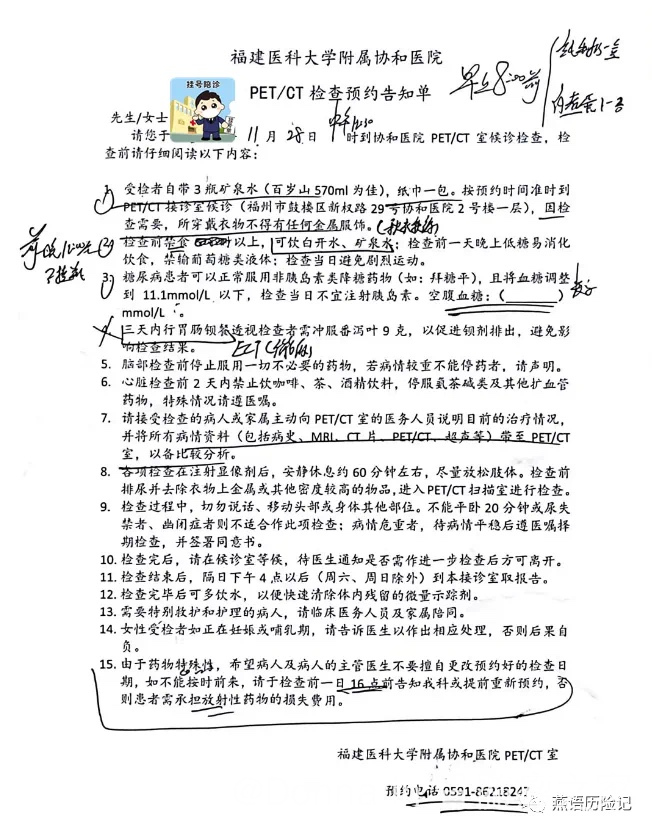 福建医科大学附属协和医院
PET/CT 检查预约告知单
早上8:00前
挂号陪诊
先生/女士
请您于 11 月 28 日 时到协和医院 PET/CT 室候诊检查，检
查前请仔细阅读以下内容：
1. 受检者自带 3 瓶矿泉水（百岁山 570ml 为佳），纸巾一包。按预约时间准时到
PET/CT 接诊室候诊（福州市鼓楼区新权路 29 号协和医院 2 号楼一层），因检
查需要，所穿戴衣物不得有任何金属服饰。
2. 检查前禁食 以上，可饮白开水、矿泉水；检查前一天晚上低糖易消化
饮食，禁输葡萄糖类液体；检查当日避免剧烈运动。
3. 糖尿病患者可以正常服用非胰岛素类降糖药物（如：拜糖平），且将血糖调整
到 11.1mmol/L 以下，检查当日不宜注射胰岛素。空腹血糖：（ ）
mmol/L 。
三天内行胃肠钡餐透视检查者需冲服番泻叶 9 克，以促进钡剂排出，避免影
响检查结果。
5. 脑部检查前停止服用一切不必要的药物，若病情较重不能停药者，请声明。
6. 心脏检查前 2 天内禁止饮咖啡、茶、酒精饮料，停服氨茶碱类及其他扩血管
药物，特殊情况请遵医嘱。
7. 请接受检查的病人或家属主动向 PET/CT 室的医务人员说明目前的治疗情况，
并将所有病情资料（包括病史、MRI、CT 片、PET/CT、超声等）带至 PET/CT
室，以备比较分析。
8. 各项检查在注射显像剂后，安静休息约 60 分钟左右，尽量放松肢体。检查前
排尿并去除衣物上金属或其他密度较高的物品，进入 PET/CT 扫描室进行检查。
9. 检查过程中，切勿说话、移动头部或身体其他部位。不能平卧 20 分钟或尿失
禁者、幽闭症者则不适合作此项检查；病情危重者，待病情平稳后遵医嘱择
期检查，并签署同意书。
10. 检查完后，请在候诊室等候，待医生通知是否需作进一步检查后方可离开。
11. 检查结束后，隔日下午 4 点以后（周六、周日除外）到本接诊室取报告。
12. 检查完毕后可多饮水，以便快速清除体内残留的微量示踪剂。
13. 需要特别救护和护理的病人，请临床医务人员及家属陪同。
14. 女性受检者如正在妊娠或哺乳期，请告诉医生以作出相应处理，否则后果自
负。
15. 由于药物特殊性，希望病人及病人的主管医生不要擅自更改预约好的检查日
期，如不能按时前来，请于检查前一日 16 点前告知我科或提前重新预约，否
则患者需承担放射性药物的损失费用。
福建医科大学附属协和医院 PET/CT 室
预约电话 0591-86218247
燕语历险记